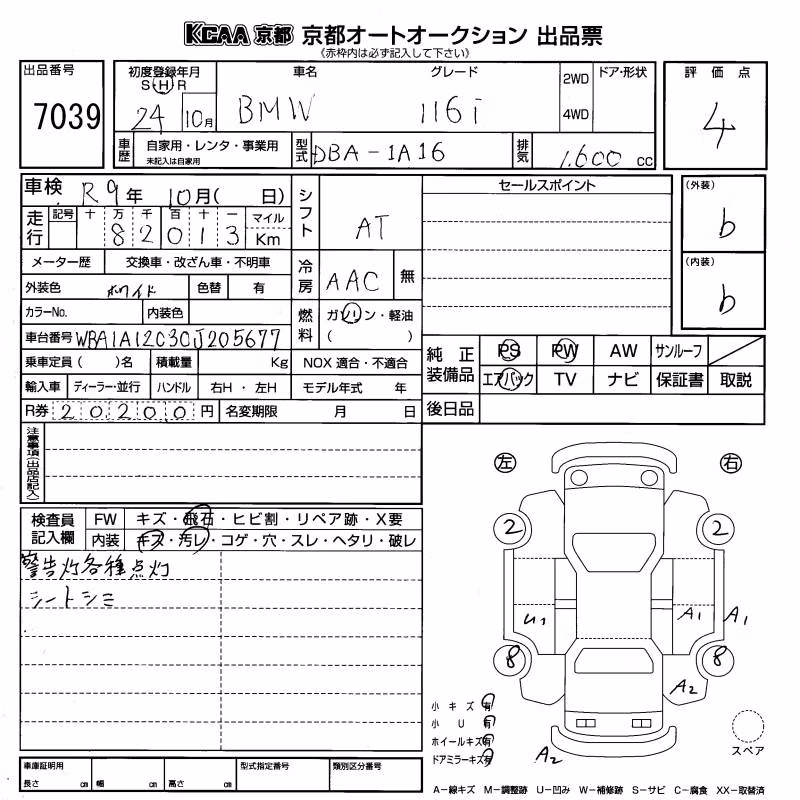 KCAA 京都 京都オートオークション 出品票
(赤枠内は必ず記入して下さい)
出品番号
7039
初度登録年月
S・H・R
24 10月
車名
BMW
グレード
116i
2WD
4WD
ドア・形状
評価点
4
車歴
自家用・レンタ・事業用
未記入は自家用
型式
DBA-1A16
排気
1.600 cc
車検 R9年 10月( 日)
走行
記号 十 万 千 百 十 一 マイル
8 2 0 1 3 Km
シフト
AT
セールスポイント
(外装)
b
(内装)
b
メーター歴 交換車・改ざん車・不明車
冷房
AAC 無
外装色 ホワイト 色替 有
カラーNo. 内装色
燃料
ガソリン・軽油
( )
車台番号 WBA1A12C3CJ205677
乗車定員( )名 積載量 Kg NOX 適合・不適合
輸入車 ディーラー・並行 ハンドル 右H・左H モデル年式 年
R券 20200円 名変期限 月 日
純正装備品
PS PW AW サンルーフ
エアバック TV ナビ 保証書 取説
後日品
注意事項(出品店記入)
検査員記入欄
FW キズ・飛石・ヒビ割・リペア跡・X要
内装 キズ・汚レ・コゲ・穴・スレ・ヘタリ・破レ
警告灯各種点灯
シートシミ
左 右
2 2
U1 A1 A1
8 8
A2
小キズ有
小U有
ホイールキズ有
ドアミラーキズ有
A2
スペア
車庫証明用
長さ cm 幅 cm 高さ cm
型式指定番号 類別区分番号
A−線キズ M−調整跡 U−凹み W−補修跡 S−サビ C−腐食 XX−取替済